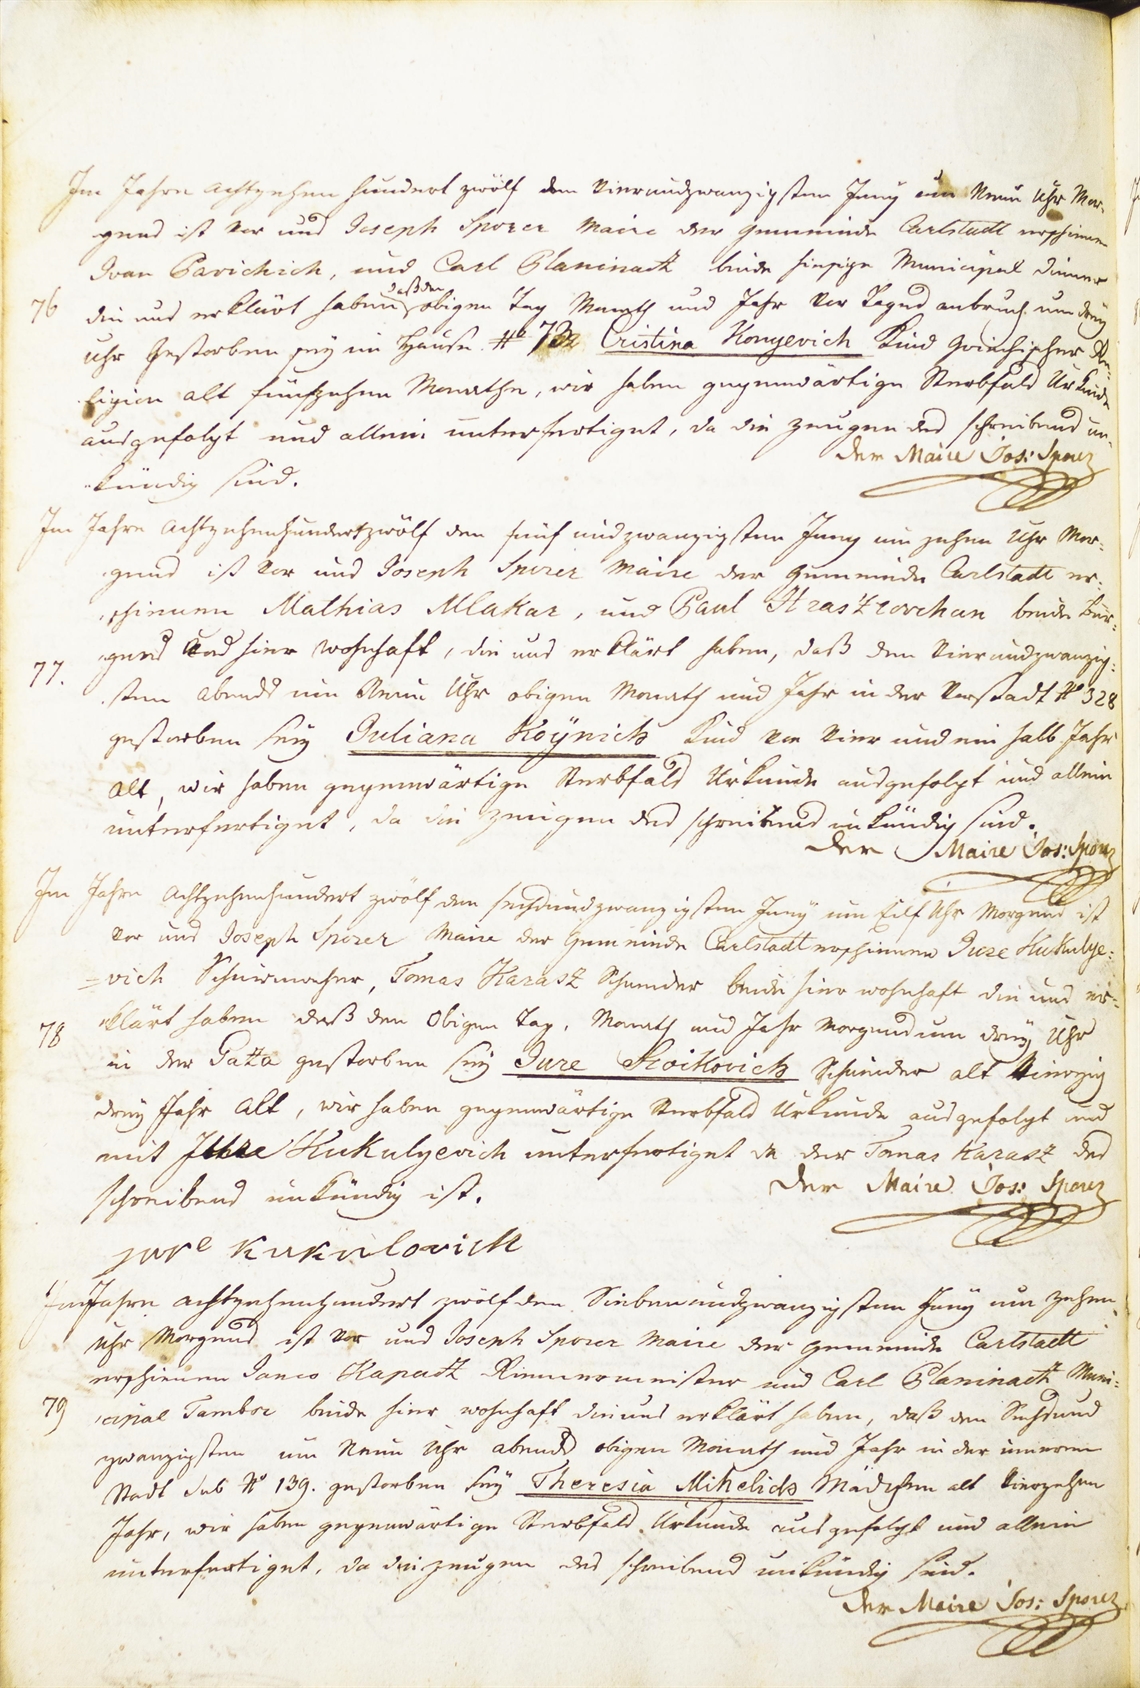 Im Jahre achtzehen hundert zwölf den Vierundzwanzigsten Juny um Neun Uhr Mor-
gends ist vor uns Joseph Sporer Maire der Gemeinde Carlstadt erschienen
Ivan Pavichich, und Carl Planinack beide hiesige Municipal Diener
76 die uns erklärt haben, daß den obigen Tag Monath und Jahr vor Tagsanbruch um drey
Uhr Gestorben sey im Hause N° Cristina Konyevich Kind Griechischer Re-
ligion alt fünfzehen Monathe, wir haben gegenwärtige Sterbfalls Urkunde
ausgefolgt und allein unterfertiget, da die Zeugen des schreibens un-
kündig sind.
der Maire Jos: Sporer
Im Jahre Achtzehenhundertzwölf den fünf und zwanzigsten Juny um zehen Uhr Mor-
gends ist vor uns Joseph Sporer Maire der Gemeinde Carlstadt er-
schienen Mathias Mlakar, und Paul Hrasztovchan beide Bür-
gers und hier wohnhaft, die uns erklärt haben, daß den Vierundzwanzig-
77. sten abends um Neun Uhr obigen Monath und Jahr in der Vorstadt N° 328
gestorben sey Juliana Koÿnich Kind von Vier und ein halb Jahr
alt, wir haben gegenwärtige Sterbfalls Urkunde ausgefolgt und allein
unterfertiget, da die Zeugen des schreibens unkündig sind.
Der Maire Jos: Sporer
Im Jahre Achtzehenhundert zwölf den sechsundzwanzigsten Juny um Eilf Uhr Morgends ist
vor uns Joseph Sporer Maire der Gemeinde Carlstadt erschienen Jure Kukulye-
=vich Schuirmacher, Tomas Karasz Schneider beide hier wohnhaft die uns er-
78 klärt haben daß den Obigen Tag, Monath und Jahr Morgends um drey Uhr
in der Gaza gestorben sey Jure Stoikovich Schneider alt Vierzig
drey Jahr alt, wir haben gegenwärtige Sterbfalls Urkunde ausgefolgt und
mit Jure Kukulyevich unterfertiget da der Tomas Karasz des
schreibens unkündig ist.
Der Maire Jos: Sporer
jure Kukulovich
Im Jahre achtzehenhundert zwölf den Siebenundzwanzigsten Juny um zehen
Uhr Morgends ist vor uns Joseph Sporer Maire der Gemeinde Carlstadt
erschienen Janco Kapack Riemermeister und Carl Planinack Muni-
79 cipal Tambor beide hier wohnhaft die uns erklärt haben, daß den Sechsund
zwanzigsten um Neun Uhr abends obigen Monath und Jahr in der inneren
Stadt Sub N° 139. gestorben sey Theresia Mihelich Mädchen alt Vierzehen
Jahr, wir haben gegenwärtige Sterbfalls Urkunde ausgefolgt und allein
unterfertiget, da die Zeugen des schreibens unkündig sind.
Der Maire Jos: Sporer